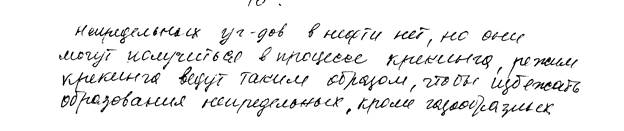 непредельных уг-дов в нефти нет, но они
могут получиться в процессе крекинга, режим
крекинга ведут таким образом, чтобы избежать
образования непредельных, кроме газообразных